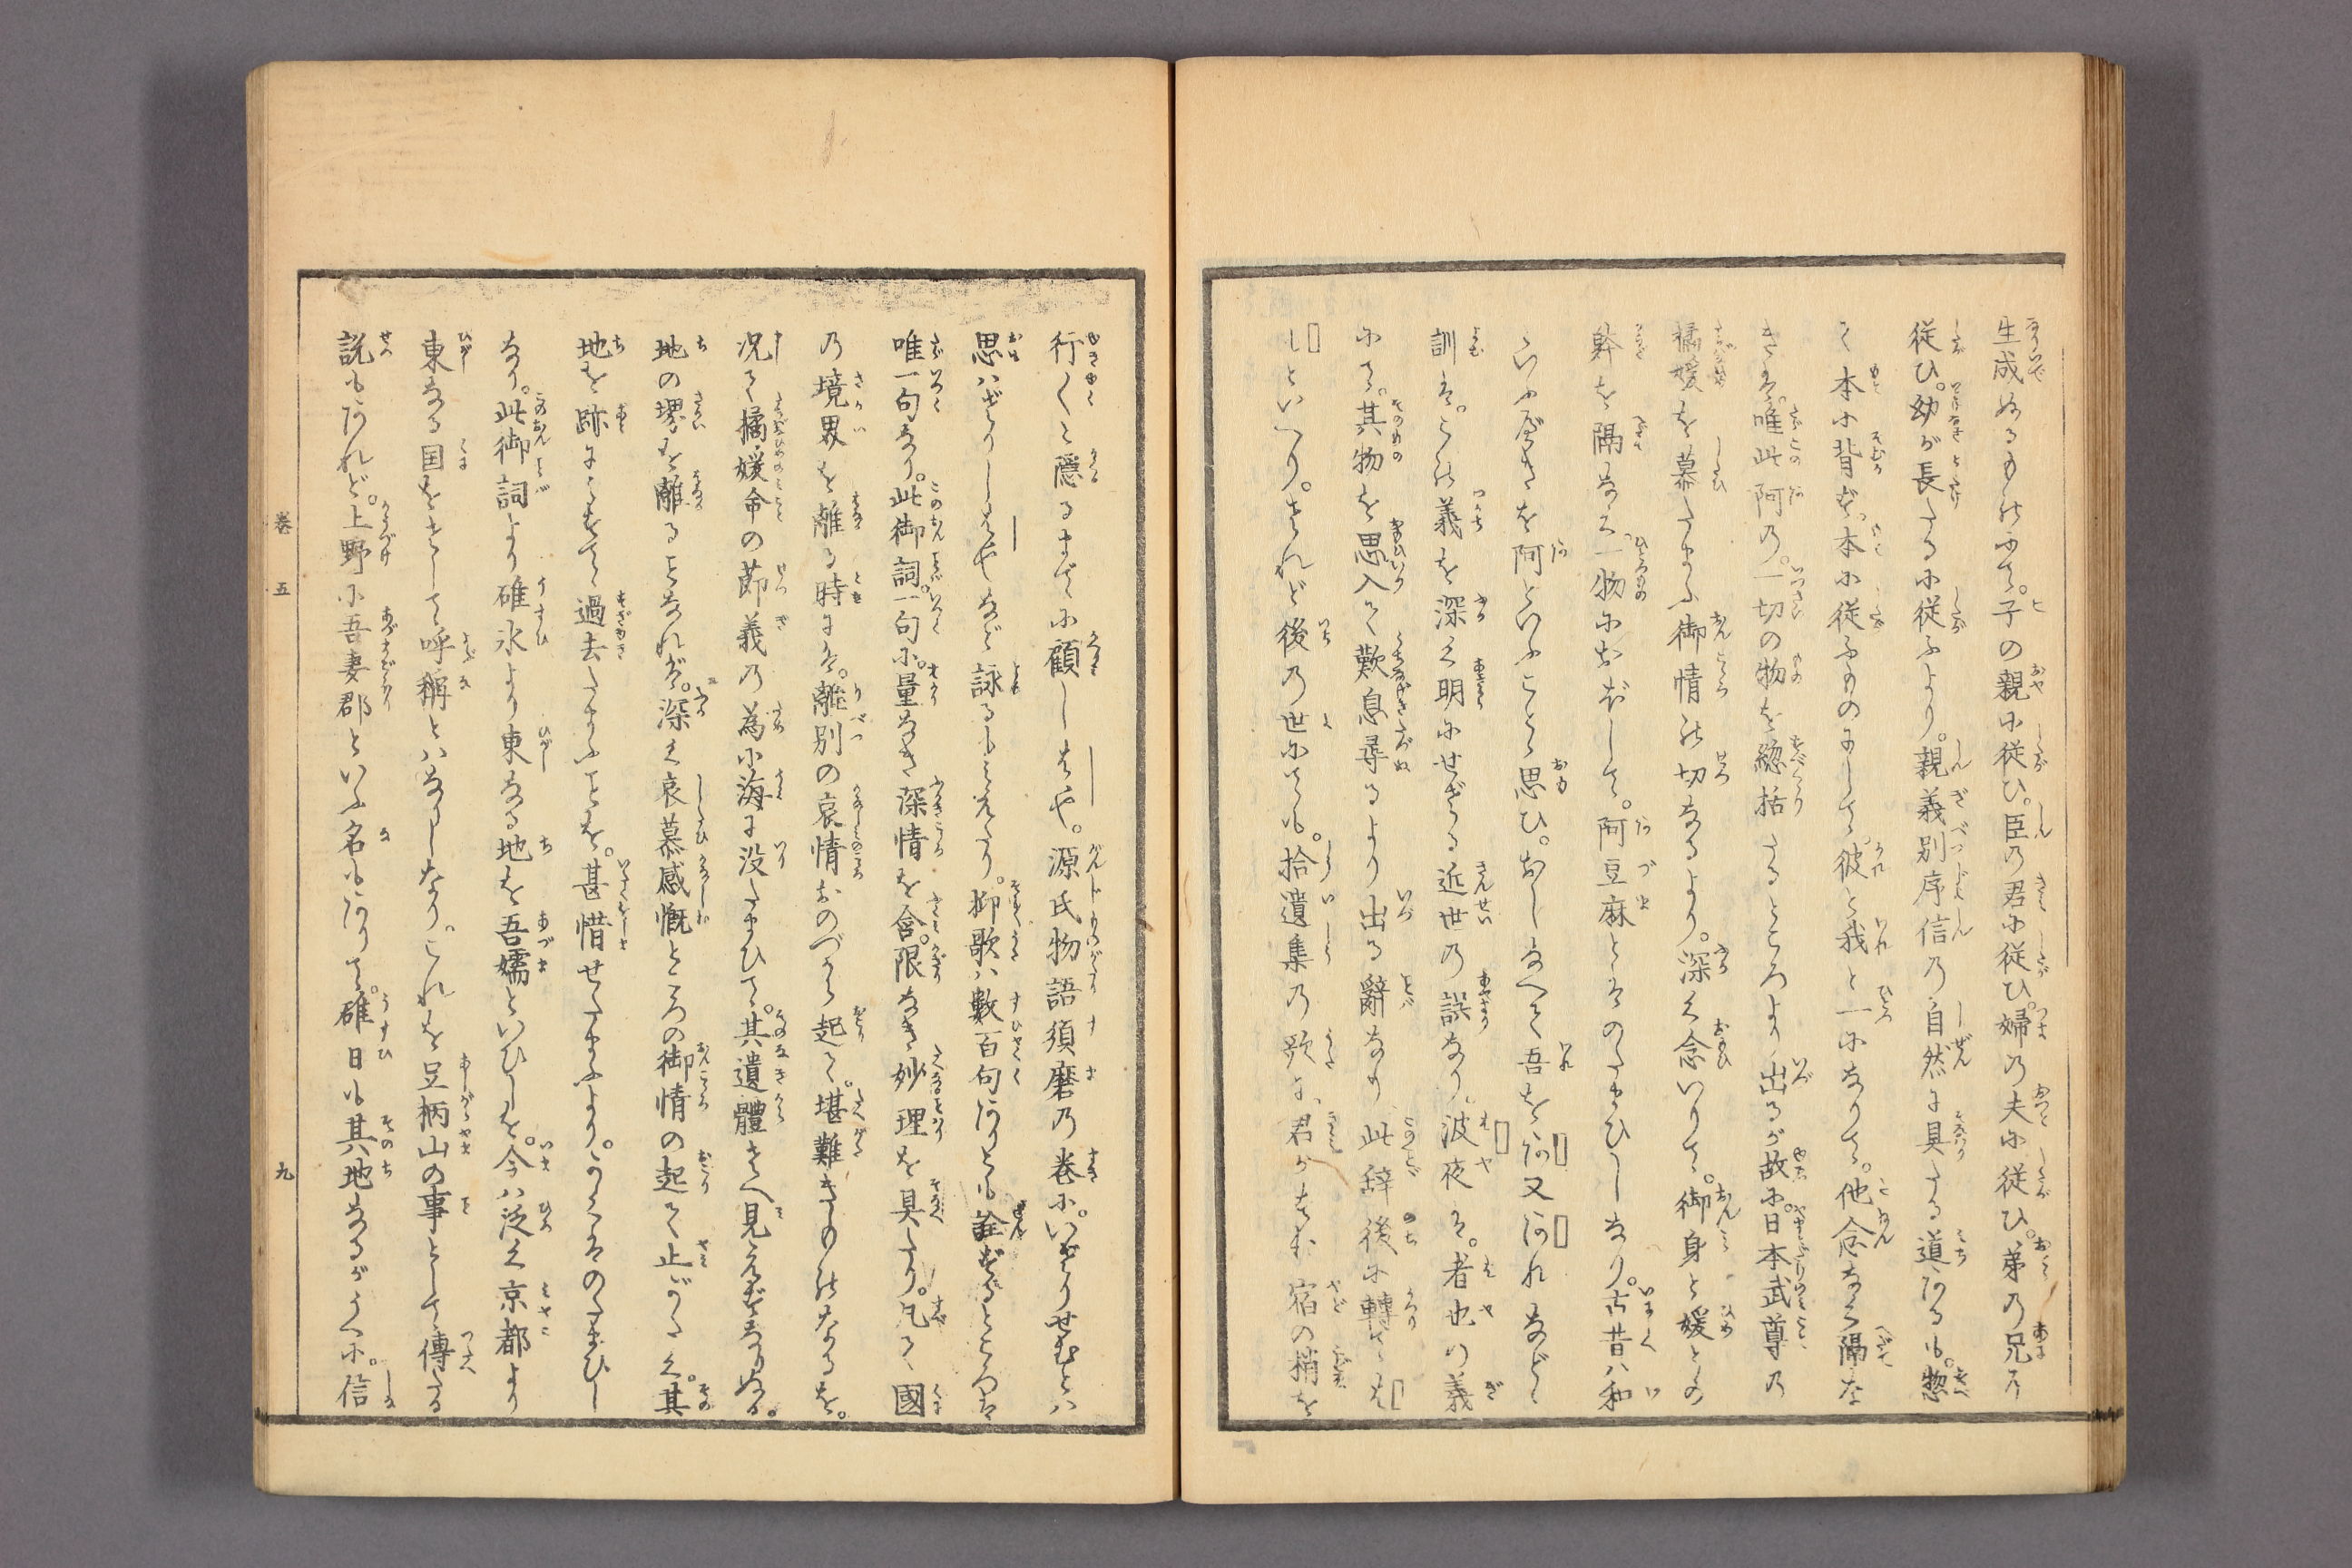 生成ぬるものにて。子の親に従ひ。臣の君に従ひ。婦の夫に従ひ。弟の兄に
従ひ。幼が長たるに従ふより。親義別序信の自然に具たる道あるも。惣
て本に背ず。本に従ふものにして。彼と我と一になりて。他念なく隔な
きは。唯此阿の。一切の物を総括たるところより出るが故に。日本武尊の
橘媛を慕たまふ御情の切なるより。深く念いりて。御身と媛との
幹を隔なく。一物におぼして。阿豆麻とはのたまひしなり。古昔は和
いふべきを阿といふことゝ思ひ。おしなへて吾を阿又阿れなどゝ
訓は。この義を深く明にせざる近世の誤なり。波夜は。者也の義
にて。其物を思入て歎息尋るより出る辭なり。此辞後に轉てはも
しといへり。されど後の世にても。拾遺集の歌に。君がすむ宿の梢を
行〳〵と隱るまでに顧しはや。源氏物語須磨の巻に。いざりせむとは
思はざりしはやなど詠るもみえたり。抑歌は數百句ありとも詮ずるところは
唯一句なり。此御詞一句に。量なき深情を含。限なき妙理を具たり。凡て國
の境界を離る時には。離別の哀情おのづから起て。堪難きものなるを。
况て橘媛命の節義の為に海に没たまひて。其遺體さへ見えずなりぬる。
地の堺を離るゝなれば。深く哀慕感慨ところの御情の起て止がたく。其
地を跡になして過去たまふことを。甚惜せたまふより。かくはのたまひし
なり。此御詞より碓氷より東なる地を吾嬬といひしを。今は泛く京都より
東なる国をさして呼稱とはなりしなり。これを足柄山の事として傳たる
説もあれど。上野に吾妻郡といふ名もありて。碓日も其地なるがうへに。信
巻五
九